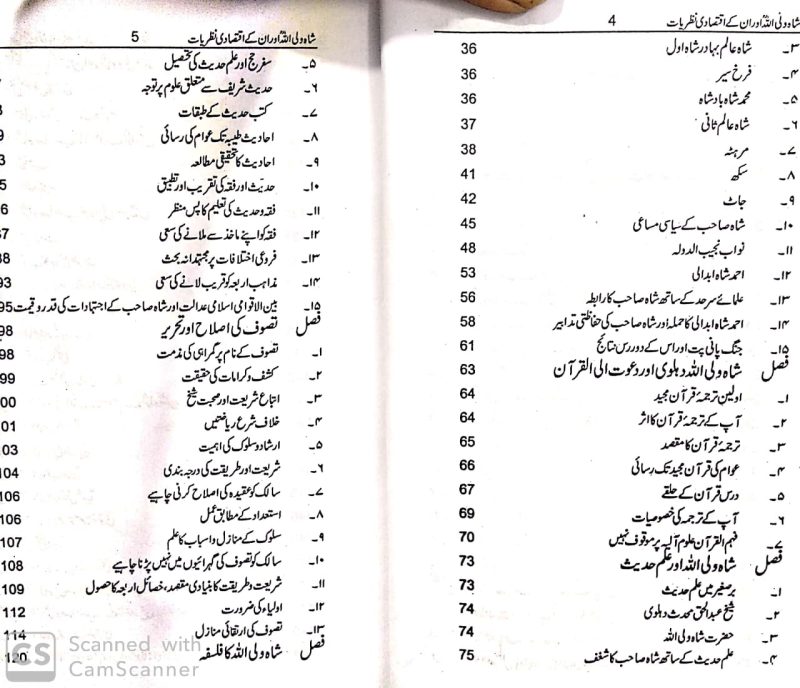 شاہ ولی اللہ اور ان کے اقتصادی نظریات 4
۳۔ شاہ عالم بہادر شاہ اول 36
۴۔ فرخ سیر 36
۵۔ محمد شاہ بادشاہ 36
۶۔ شاہ عالم ثانی 37
۷۔ مرہٹہ 38
۸۔ سکھ 41
۹۔ جاٹ 42
۱۰۔ شاہ صاحب کے سیاسی مساعی 45
۱۱۔ نواب نجیب الدولہ 48
۱۲۔ احمد شاہ ابدالی 53
۱۳۔ علمائے سرحد کے ساتھ شاہ صاحب کا رابطہ 56
۱۴۔ احمد شاہ ابدالی کا حملہ اور شاہ صاحب کی حفاظتی تدابیر 58
۱۵۔ جنگ پانی پت اور اس کے دوررس نتائج 61
فصل شاہ ولی اللہ دہلوی اور دعوت الی القرآن 63
۱۔ اولین ترجمۂ قرآن مجید 64
۲۔ آپ کے ترجمۂ قرآن کا اثر 64
۳۔ ترجمۂ قرآن کا مقصد 65
۴۔ عوام کی قرآن مجید تک رسائی 66
۵۔ درس قرآن کے حلقے 67
۶۔ آپ کے ترجمہ کی خصوصیات 69
۷۔ فہم القرآن علوم آلیہ پر موقوف نہیں 70
فصل شاہ ولی اللہ اور علم حدیث 73
۱۔ برصغیر میں علم حدیث 73
۲۔ شیخ عبدالحق محدث دہلوی 74
۳۔ حضرت شاہ ولی اللہ 74
۴۔ علم حدیث کے ساتھ شاہ صاحب کا شغف 75
شاہ ولی اللہ اور ان کے اقتصادی نظریات 5
۵۔ سفر حج اور علم حدیث کی تحصیل
۶۔ حدیث شریف سے متعلق علوم پر توجہ
۷۔ کتب حدیث کے طبقات
۸۔ احادیث طیبہ تک عوام کی رسائی
۹۔ احادیث کا تحقیقی مطالعہ
۱۰۔ حدیث اور فقہ کی تقریب اور تطبیق
۱۱۔ فقہ و حدیث کی تعلیم کا پس منظر
۱۲۔ فقہ کو اپنے ماخذ سے ملانے کی سعی
۱۳۔ فروعی اختلافات پر مجتہدانہ بحث
۱۴۔ مذاہب اربعہ کو قریب لانے کی سعی 93
۱۵۔ بین الاقوامی اسلامی عدالت اور شاہ صاحب کے اجتہادات کی قدر و قیمت 95
فصل تصوف کی اصلاح اور تحریر 98
۱۔ تصوف کے نام پر گمراہی کی مذمت 98
۲۔ کشف و کرامات کی حقیقت 99
۳۔ اتباع شریعت اور صحبت شیخ 00
۴۔ خلاف شرع ریاضتیں 01
۵۔ ارشاد و سلوک کی اہمیت 103
۶۔ شریعت اور طریقت کی درجہ بندی 104
۷۔ سالک کو عقیدہ کی اصلاح کرنی چاہیے 106
۸۔ استعداد کے مطابق عمل 106
۹۔ سلوک کے منازل و اسباب کا علم 107
۱۰۔ سالک کو تصوف کی گہرائیوں میں نہیں پڑنا چاہیے 108
۱۱۔ شریعت و طریقت کا بنیادی مقصد، خصائل اربعہ کا حصول 109
۱۲۔ اولیاء کی ضرورت 112
۱۳۔ تصوف کی ارتقائی منازل 114
فصل شاہ ولی اللہ کا فلسفہ 120
CS Scanned with
CamScanner